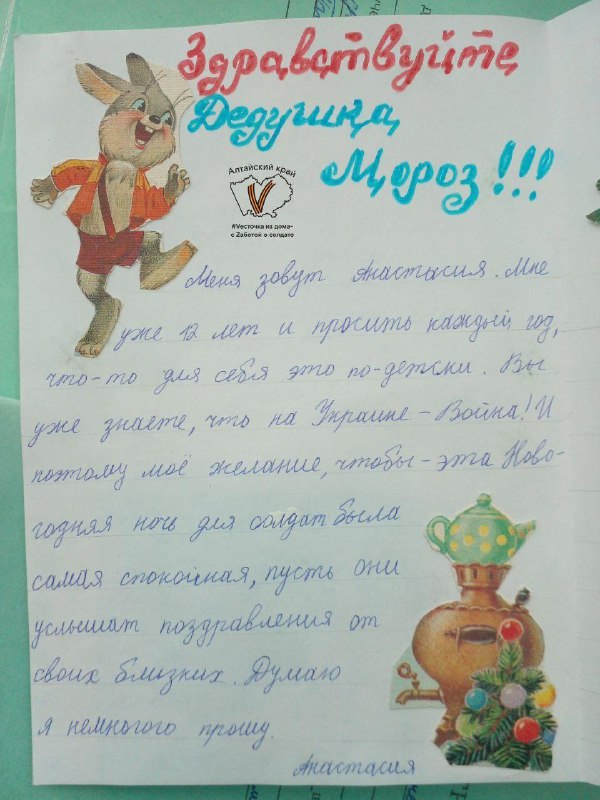 Здравствуйте
Дедушка
Мороз!!!
Алтайский край
V
#Vесточка из дома-
с Zаботой о солдате
Меня зовут Анастасия. Мне
уже 12 лет и просить каждый год,
что-то для себя это по-детски. Вы
уже знаете, что на Украине - Война! И
поэтому моё желание, чтобы - эта Ново-
годняя ночь для солдат была
самая спокойная, пусть они
услышат поздравления от
своих близких. Думаю
я немногого прошу.
Анастасия